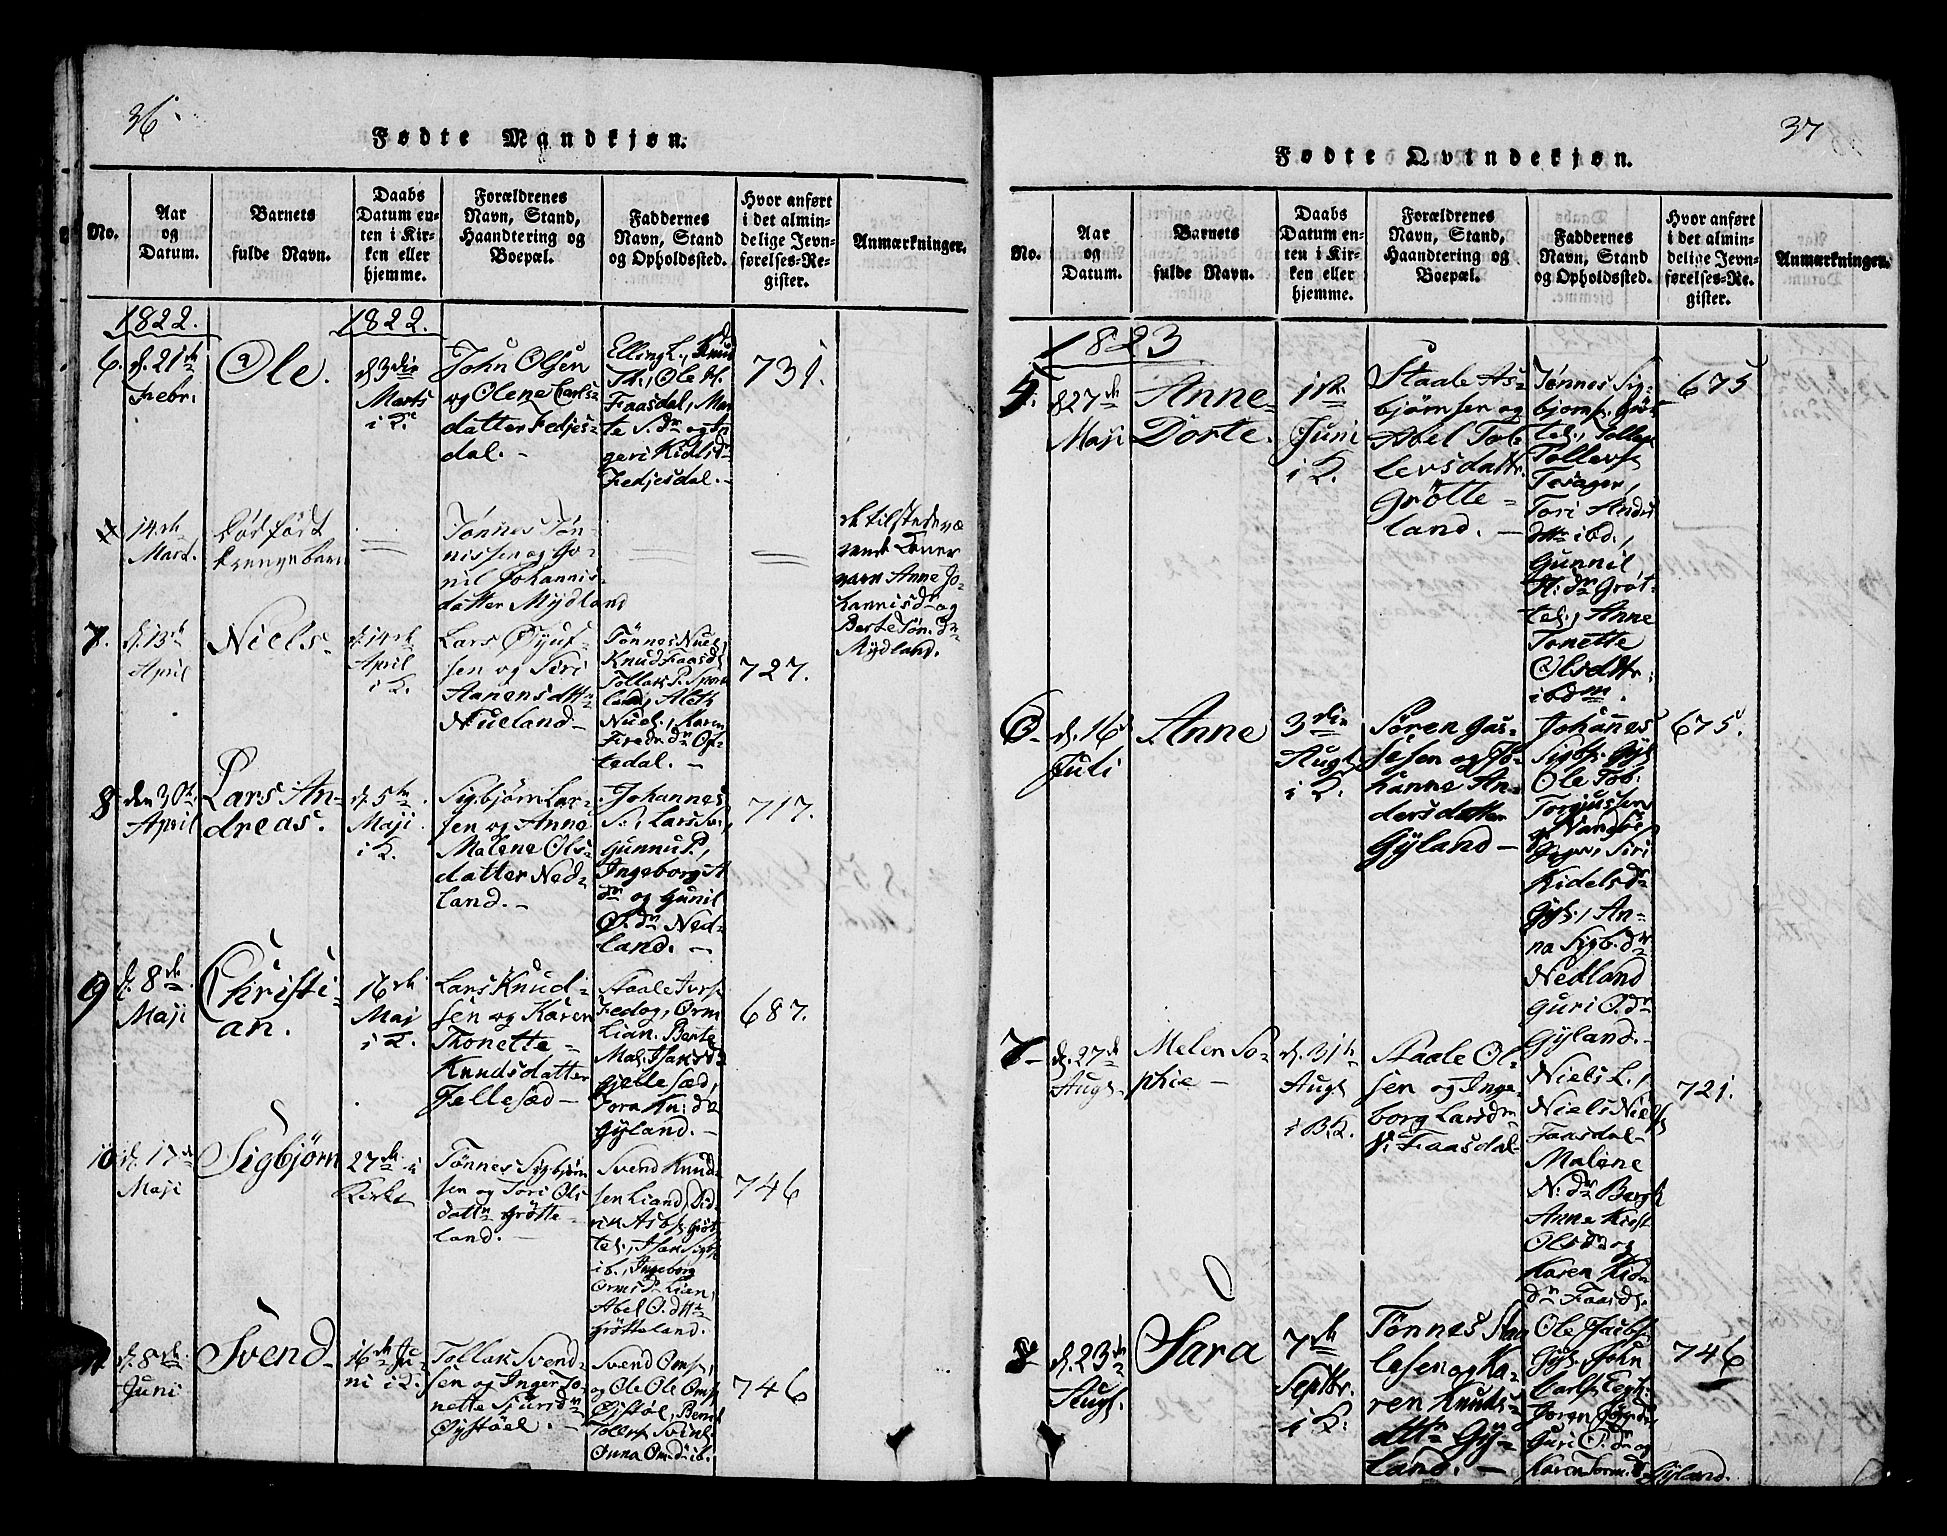 36.
Fødte Mandkjøn.
No.
Aar
og
Datum.
Barnets
fulde Navn.
Daabs
Datum en-
ten i Kir-
ken eller
hjemme.
Forældrenes
Navn, Stand,
Haandtering og
Boepæl.
Faddernes
Navn, Stand
og Opholdssted.
Hvor anført
i det almin-
delige Jevn-
førelses-Re-
gister.
Anmærkninger.
1822.
1822.
6.
d. 21de
Febr.
Ole.
d 3die
Marts
i K.
John Olsen
og Olene Carls-
datter Fedjes-
dal. -
Elling L.,
Th., Ole H.
Faasdal, Mar
te S. dr og In
geri
Fedjesdal. -
731.
14de
Mart.
Dödfödt
Drengebarn
Tönnes Tön-
nissen og Go-
nil Johannis-
datter Mydland
de tilstedevæ
rende Koner
vare Anne Jo-
hannisdr og
Berte Tön. dr
Mydland.
7.
d. 13de
April
Niels-
d. 14de
April
i K.
Lars
sen og Siri
Aanensdttr
Nueland-
Tönnes Nuel.,
Knud Faasd.
Tollak P.
land, Aleth
Nuel., Karen
Fredr. dr Of-
tedal. -
727.
8
den 30te
April
Lars An-
dreas.
d. 5te
Maji
i K.
Sigbjörn Lar-
sen og Anne
Malene Ols-
datter Ned-
land. -
Johannes
S., Lars So.,
Gunnu P.,
Ingeborg A
dr og Gunil
O. dr Ned-
land. -
717.
9
d. 8de
Maji
Christi-
an.
16de
Maj
i K.
Lars Knud-
sen og Karen
Thonette-
Knudsdatter
Fellesæd-
Staale Ivers.
Fedog, Orm
Lian. Berte
Mal. Isaksd
Gjellesæd,
Tora Kn: dr
Gyland. -
687.
10
d. 17de
Maji
Sigbjörn
27de i
Kirke
Tönnes Sigbjörn
sen og Tori Ols
dattr Grötte-
land. -
Svend Knud-
sen Liand, Did-
rik Asbs. Gröt
tel., Isak Sigb.
ib., Ingeborg
Ormsd. Lian,
Abel O. dttr
Grötteland.
746
11
d. 8de
Juni
Svend-
16de Ju-
ni i K.
Tollak Svend-
sen og Inger To-
nette Sjursdr
Öystöel. -
Svend Oms.,
og Ole Ole Oms.
Öistöl, Berte
Tollefs. Svends.
Onna Om. dr ib.
746
37
Fødte Qvindekjøn.
No.
Aar
og
Datum.
Barnets
fulde Navn.
Daabs
Datum en-
ten i Kir-
ken eller
hjemme.
Forældrenes
Navn, Stand,
Haandtering og
Boepæl.
Faddernes
Navn, Stand
og Opholdssted.
Hvor anført
i det almin-
delige Jevn-
førelses-Re-
gister.
Anmærkninger.
1823
5.
d 27de
Maji
Anne-
Dorte.
1ste
Juni
i K.
Staale As-
bjørnsen og
Abel Tol-
levsdattr.
Grötte-
land. -
Jönnes Sig-
bjørns. Gröt
tel., Tollef
Tollevs.
Tosager,
Tori Andrs
dttr ibd.,
Gunnil
H. dr Gröt-
tel., Anne
Tonette
Olsdttr.
ibdm.
675
6-
d. 16
Juli
Anne
3die
Augt.
i K.
Sören Gas-
sesen og Jo-
hanne An-
dersdatter
Gyland-
Johannes
Sigbs. Gyl.
Ole Tob.
Torjussen
Siri
Kidelsdr
Gyl., An-
na Sigb. dr
Nedland
Guri O. dr
Gyland. -
675.
7-
d. 27de
Augt.
Melen So-
phie -
d. 31te
Augt
i B.K.
Staale Ol-
sen og Inge-
borg Larsdr
Faasdal-
Niels L.,
Niels Niels
Faasdal-
Malene
N. dr Bergh
Anne Kirst
Olsdr og
Karen Kid
dr Faasd.
721.
8
d. 23de
Augt.
Sara
7de
Septbr.
i K.
Tönnes Staa
lesen og Ka-
ren Knuds-
dttr Gy-
land. -
Ole
Gyl., John
Carls.
Guri O. dr og
Karen Torm. dr Gyland.
746